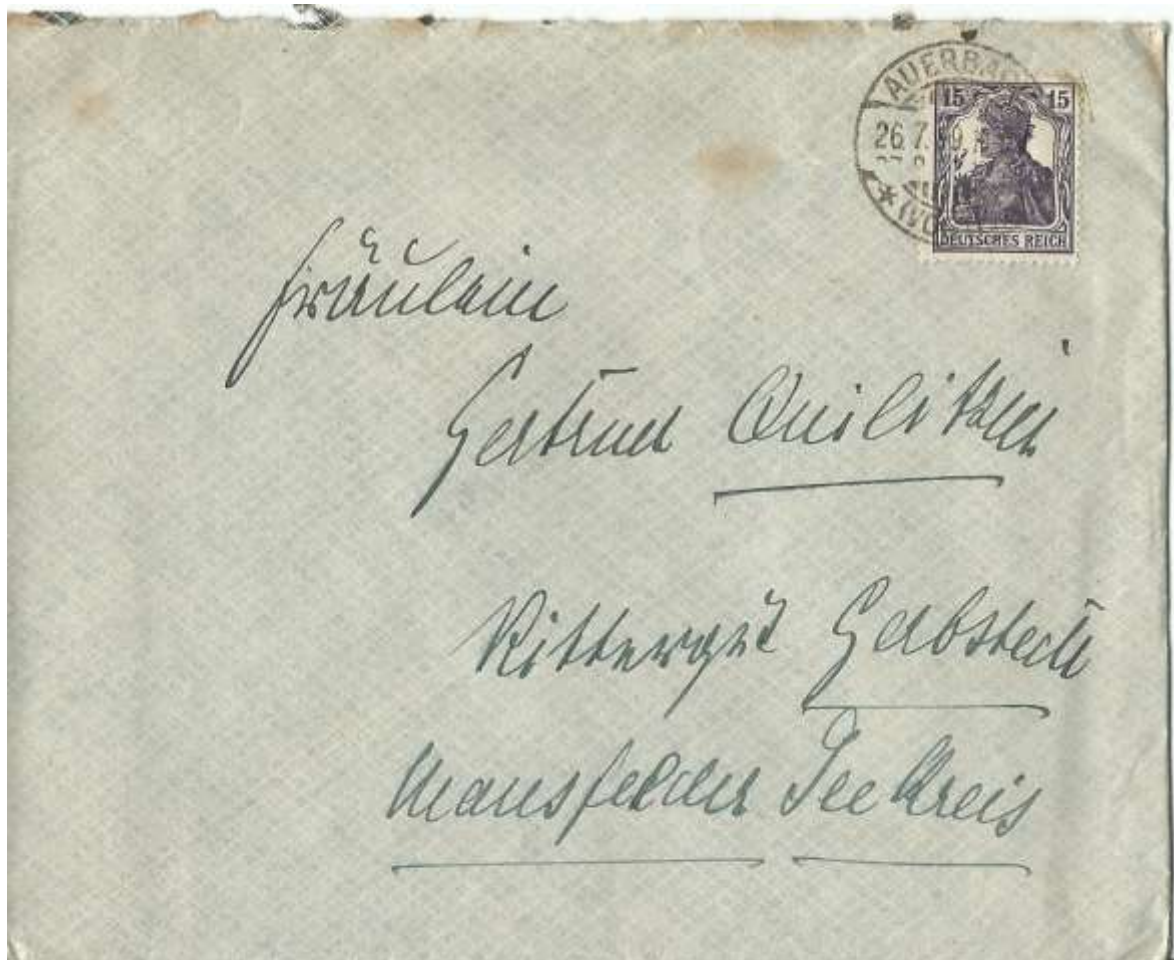 AUERBAC
15 15
26.7. 9
* (VO
DEUTSCHES REICH
Fräulein
Gertrud Quilitzsch
Rittergut Gerbstedt
Mansfelder Seekreis